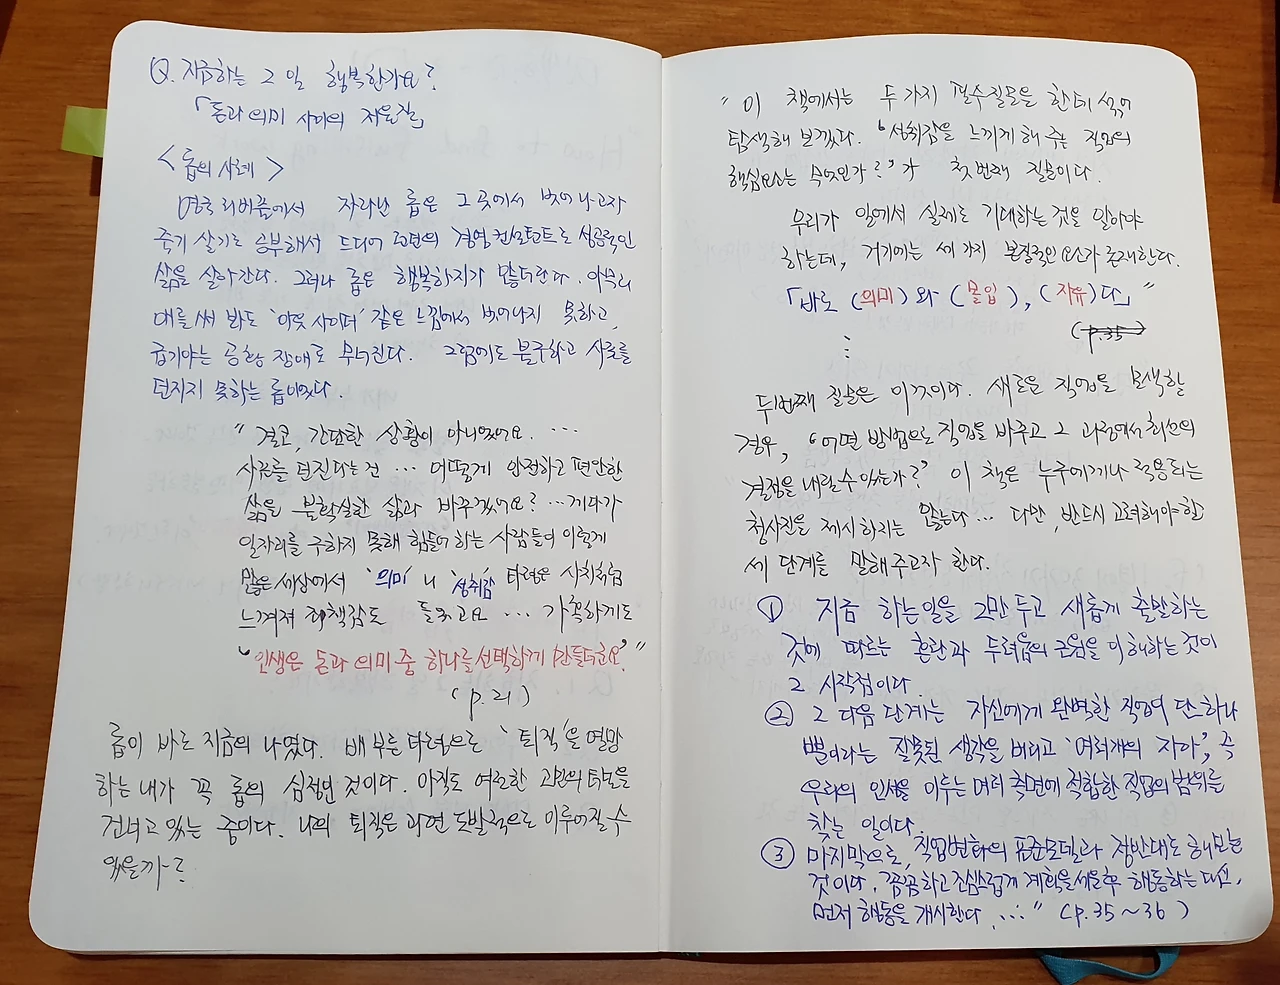 Q. 지금하는 그 일 행복한가요?
「돈과 의미 사이의 저울질」
<롭의 사례>
영국 리버풀에서 자라난 롭은 그 곳에서 벗어나고자
죽기 살기로 공부해서 드디어 런던의 경영 컨설턴트로 성공적인
삶을 살아간다. 그러나 롭은 행복하지가 않더란다. 아무리
애를 써 봐도 '아웃사이더' 같은 느낌에서 벗어나지 못하고,
급기야는 공황 장애로 무너진다. 그럼에도 불구하고 사표를
던지지 못하는 롭이었다.
" 결코, 간단한 상황이 아니었어요. ...
사표를 던진다는 건 ... 어떻게 안전하고 편안한
삶을 불확실한 삶과 바꾸겠어요? ... 게다가
일자리를 구하지 못해 힘들어 하는 사람들이 이렇게
많은 세상에서 '의미'니 '성취감' 타령은 사치처럼
느껴져 죄책감도 들었고요 ... 가혹하게도
"인생은 돈과 의미 중 하나를 선택하게 만들더군요." "
(p.21)
롭이 바로 지금의 나였다. 배부른 타령으로 '퇴직'을 열망
하는 내가 꼭 롭의 심정인 것이다. 아직도 여전한 고민의 터널을
건너고 있는 중이다. 나의 퇴직은 과연 도발적으로 이루어질 수
있을까?
" 이 책에서는 두 가지 필수질문을 한데 섞어
탐색해 보겠다. "성취감을 느끼게 해 주는 직업의
핵심요소는 무엇인가?"가 첫 번째 질문이다.
우리가 일에서 실제로 기대하는 것을 알아야
하는데, 거기에는 세 가지 본질적인 요소가 존재한다.
「바로 (의미)와 (몰입), (자유)다」"
(p.35)
⋮
두번째 질문은 이것이다. 새로운 직업을 모색할
경우, "어떤 방법으로 직업을 바꾸고 그 과정에서 최선의
결정을 내릴 수 있는가?" 이 책은 누구에게나 적용되는
청사진을 제시하지는 않는다 ... 다만, 반드시 고려해야 할
세 단계를 말해주고자 한다.
① 지금 하는 일을 그만 두고 새롭게 출발하는
것에 따르는 혼란과 두려움의 근원을 이해하는 것이
그 시작점이다.
② 그 다음 단계는 자신에게 완벽한 직업이 단 하나
뿐이라는 잘못된 생각을 버리고 '여러개의 자아', 즉
우리의 인생을 이루는 여러 측면에 적합한 직업의 범위를
찾는 일이다.
③ 마지막으로, 직업변화의 표준모델과 정반대로 해보는
것이다. 꼼꼼하고 진심스럽게 계획을 세운 후 행동하는 대신,
먼저 행동을 개시한다. ..." (p.35~36)